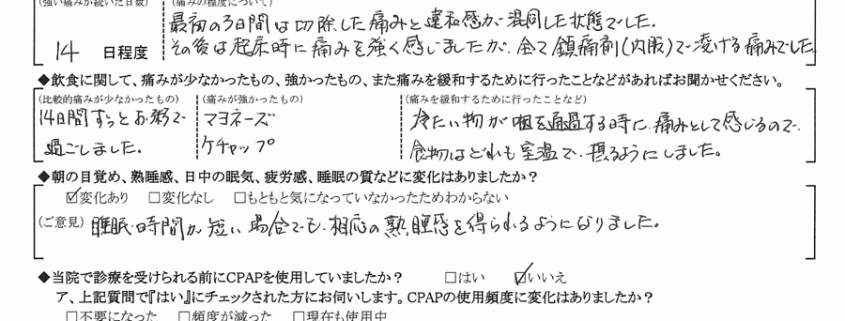 (強い痛みが続いた日数) (痛みの程度について)
最初の3日間は切除した痛みと違和感が混同した状態でした。
14 日程度 その後は起床時に痛みを強く感じましたが、全て鎮痛剤(内服)で凌げる痛みでした
◆飲食に関して、痛みが少なかったもの、強かったもの、また痛みを緩和するために行ったことなどがあればお聞かせください。
(比較的痛みが少なかったもの) (痛みが強かったもの) (痛みを緩和するために行ったことなど)
14日間ずっとお粥で マヨネーズ 冷たい物が咽を通過する時に、痛みとして感じるので、
過ごしました。 ケチャップ 食物はどれも室温で、摂るようにしました。
◆朝の目覚め、熟睡感、日中の眠気、疲労感、睡眠の質などに変化はありましたか?
☑変化あり □変化なし □もともと気になっていなかったためわからない
(ご意見) 睡眠時間が短い場合でも、相応の熟睡感を得られるようになりました。
◆当院で診療を受けられる前にCPAPを使用していましたか? □はい ☑いいえ
ア、上記質問で『はい』にチェックされた方にお伺いします。CPAPの使用頻度に変化はありましたか?
□不要になった □頻度が減った □現在も使用中